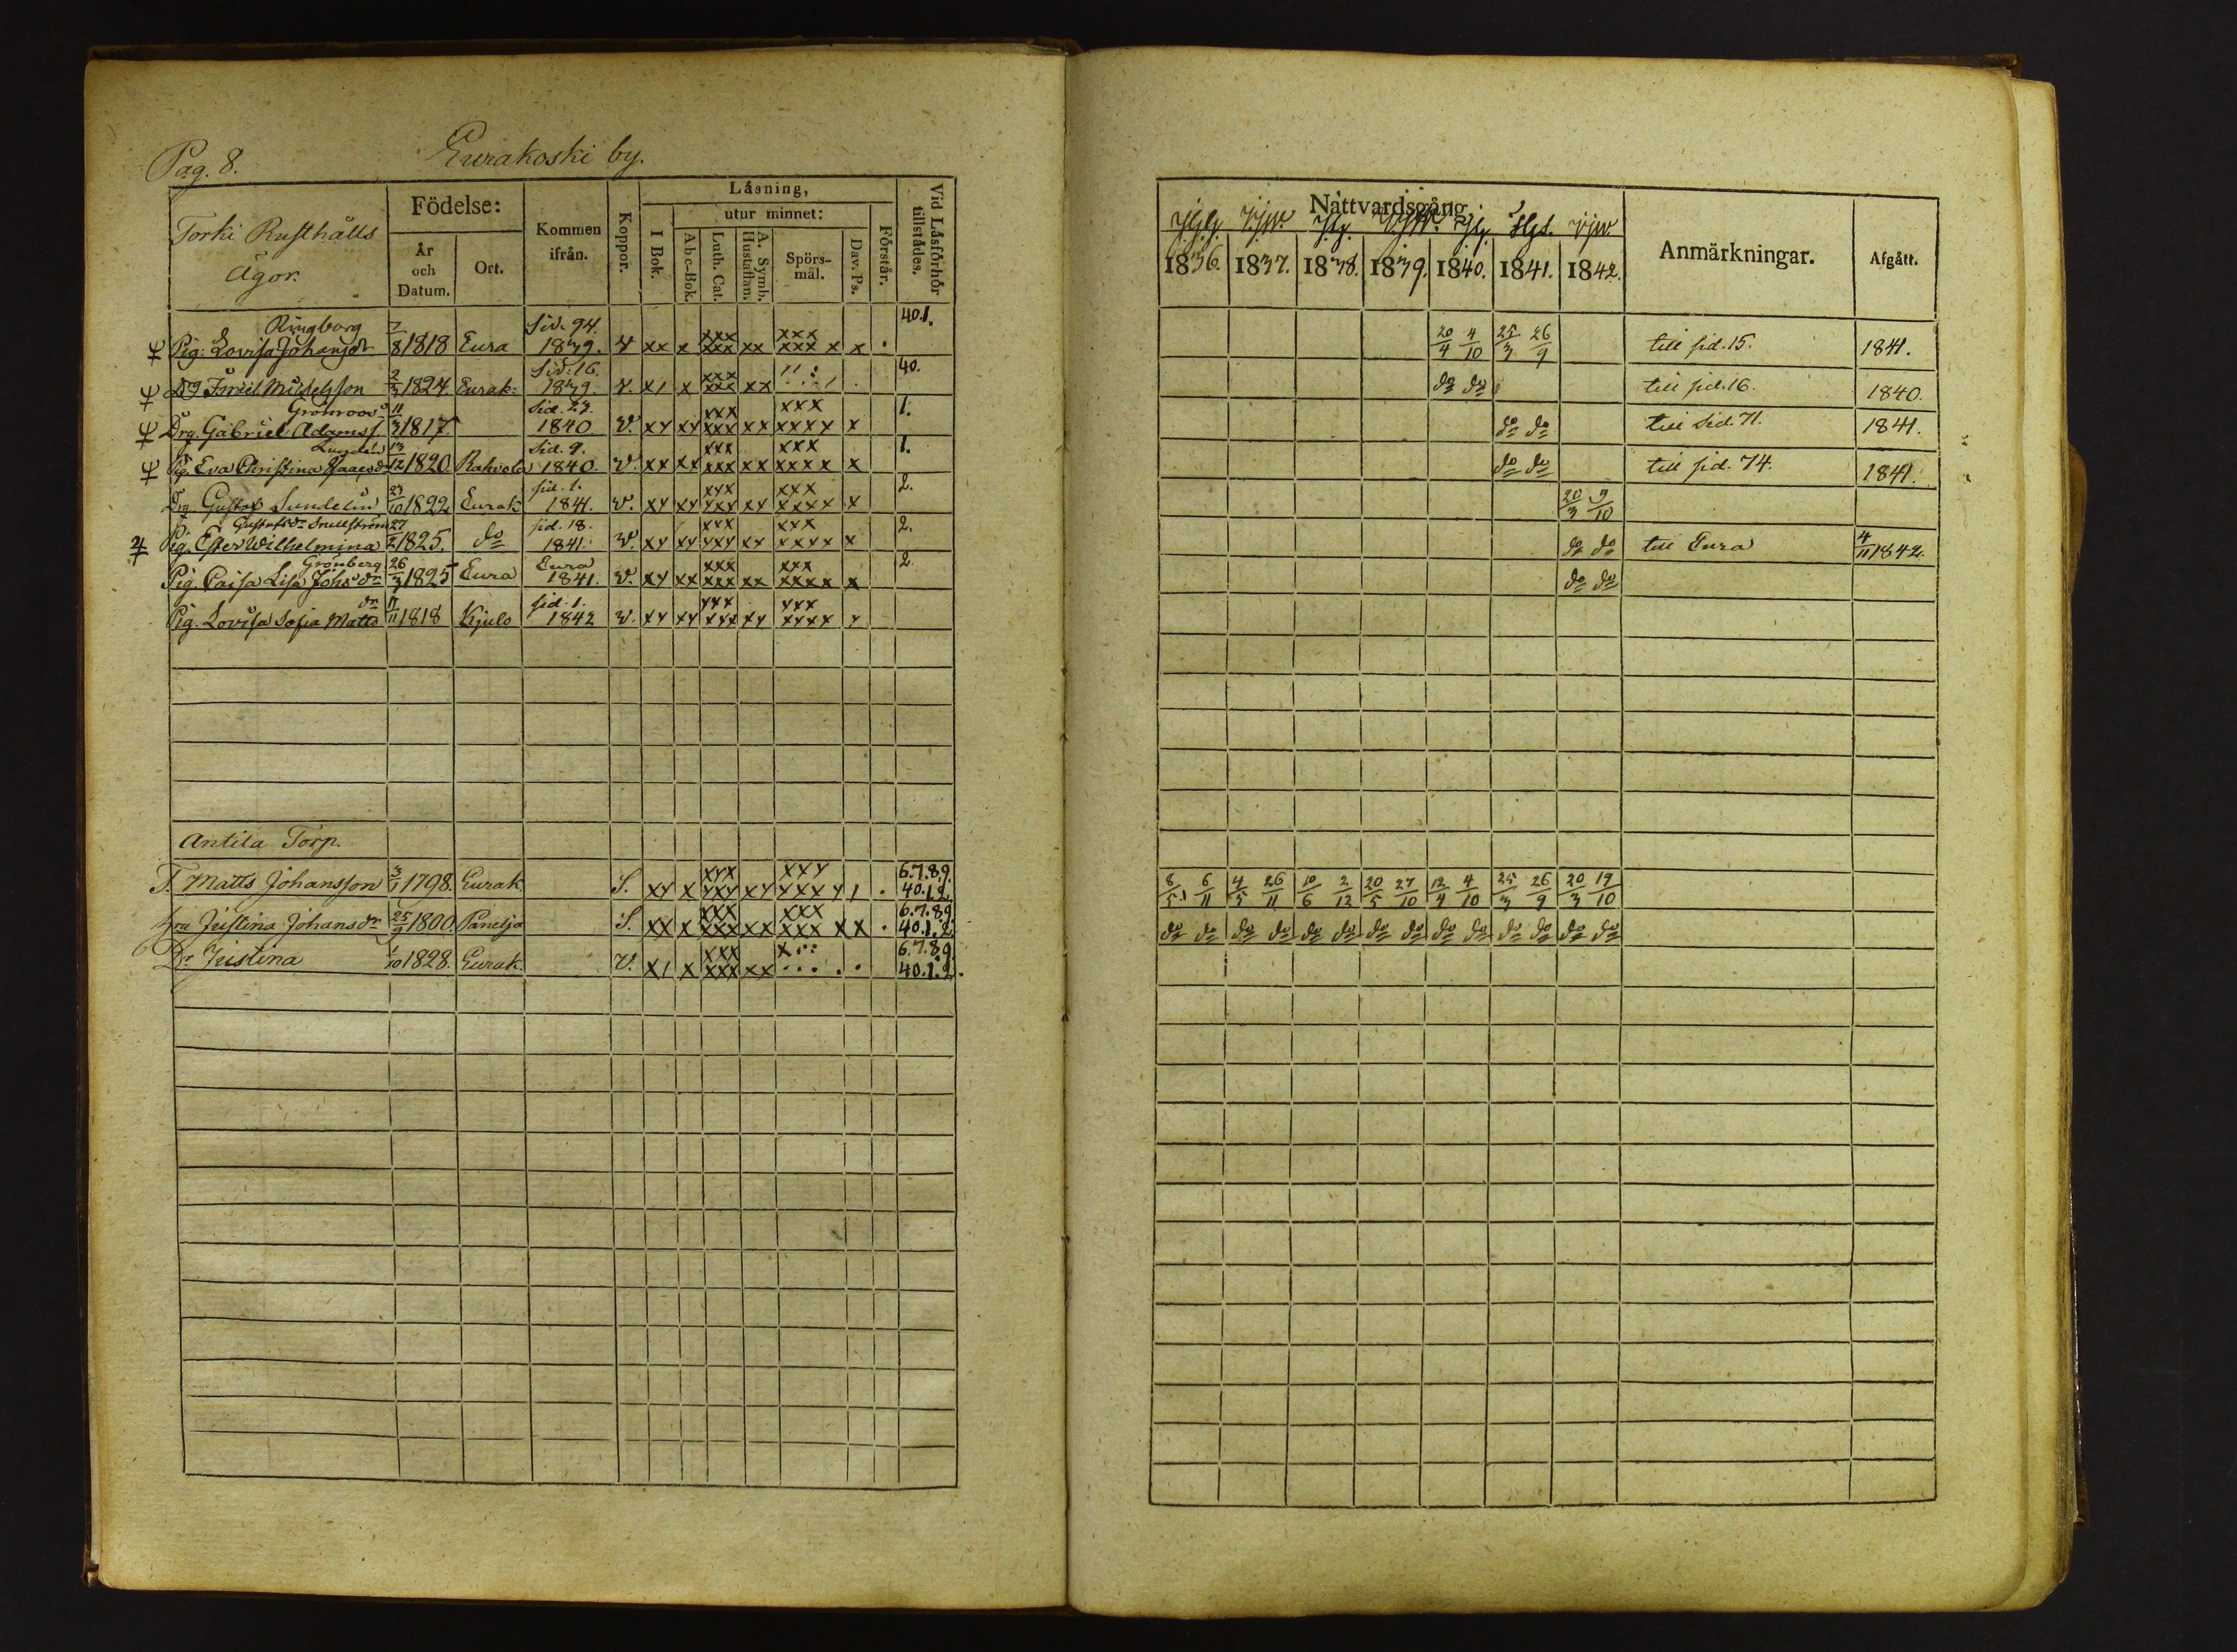 Pag. 8. Eurakoski by.
Torki Rusthålls
Ägor.
Födelse:
År
och
Datum.
Ort.
Kommen
ifrån.
Koppor.
Låsning,
I Bok.
utur minnet:
Abc-Bok.
Luth. Cat.
A. Symb.
Hustaflan.
Spörs-
mål.
Dav. Ps.
Förstår.
Vid Låsförhör
tillstådes.
Nattvardsgång
1836. 1837. 1838. 1839. 1840. 1841. 1842.
Anmärkningar.
Afgått.
Ringborg Sid. 94. 40.1.
Pig. Lovisa Johansdr 1818 Eura 1839. v xx x xxx xxx xx xxx xxx x x . 20/4 4/10 25/3 26/9 till sid. 15. 1841.
Sid. 16. 40.
Michelsson 2/3 1824. Eurak. 1839. v. x/ x xxx xxx xx do do till sid. 16. 1840.
Grönroos Sid. 23. 1.
Drg. Gabriel Adamss. 11/3 1817 1840 v. xx xx xxx xxx xx xxx xxxx x do do till Sid. 71. 1841.
Sid. 9. 1.
Pig. Eva Christina Isaacsdr 13/12 1820 1840. v. xx xx xxx xxx xx xxx xxxx x do do till sid. 74. 1841.
sid. 1. 2.
Drg. Gustaf Sundelin 23/10 1822 Eurak 1841. v. xx xx xxx xxx xx xxx xxxx x 20/3 9/10
Gustafsdr sid. 18. 2.
Pig. Ester Wilhelmina 27/2 1825. do 1841. v. xx xx xxx xxx xx xxx xxxx x do do till Eura 4/11 1842.
Grönberg Eura 2
Pig. Caisa Lisa Johsdr 26/3 1825 Eura 1841. v. xx xx xxx xxx xx xxx xxxx x do do
dr sid. 1.
Pig. Lovisa Sofia Matts 11/11 1818 Kjulo 1842 v. xx xx xxx xxx xx xxx xxxx x
Antila Torp.
T. Matts Johansson 3/1 1798. Eurak. S. xx x xxx xxx xx xxx xxx x / . 6.7.8.9. 40.1.2. 8/5 6/11 4/5 26/11 10/6 2/12 20/5 27/10 12/4 4/10 25/3 26/9 20/3 19/10
hru Justina Johansdr 25/9 1800. Panelja S. xx x xxx xxx xx xxx xxx x x . 6.7.8.9. 40.1.2. do do do do do do do do do do do do do do
Dr Justina 1/10 1828. Eurak. V. x/ x xxx xxx xx x 6.7.8.9. 40.1.2.